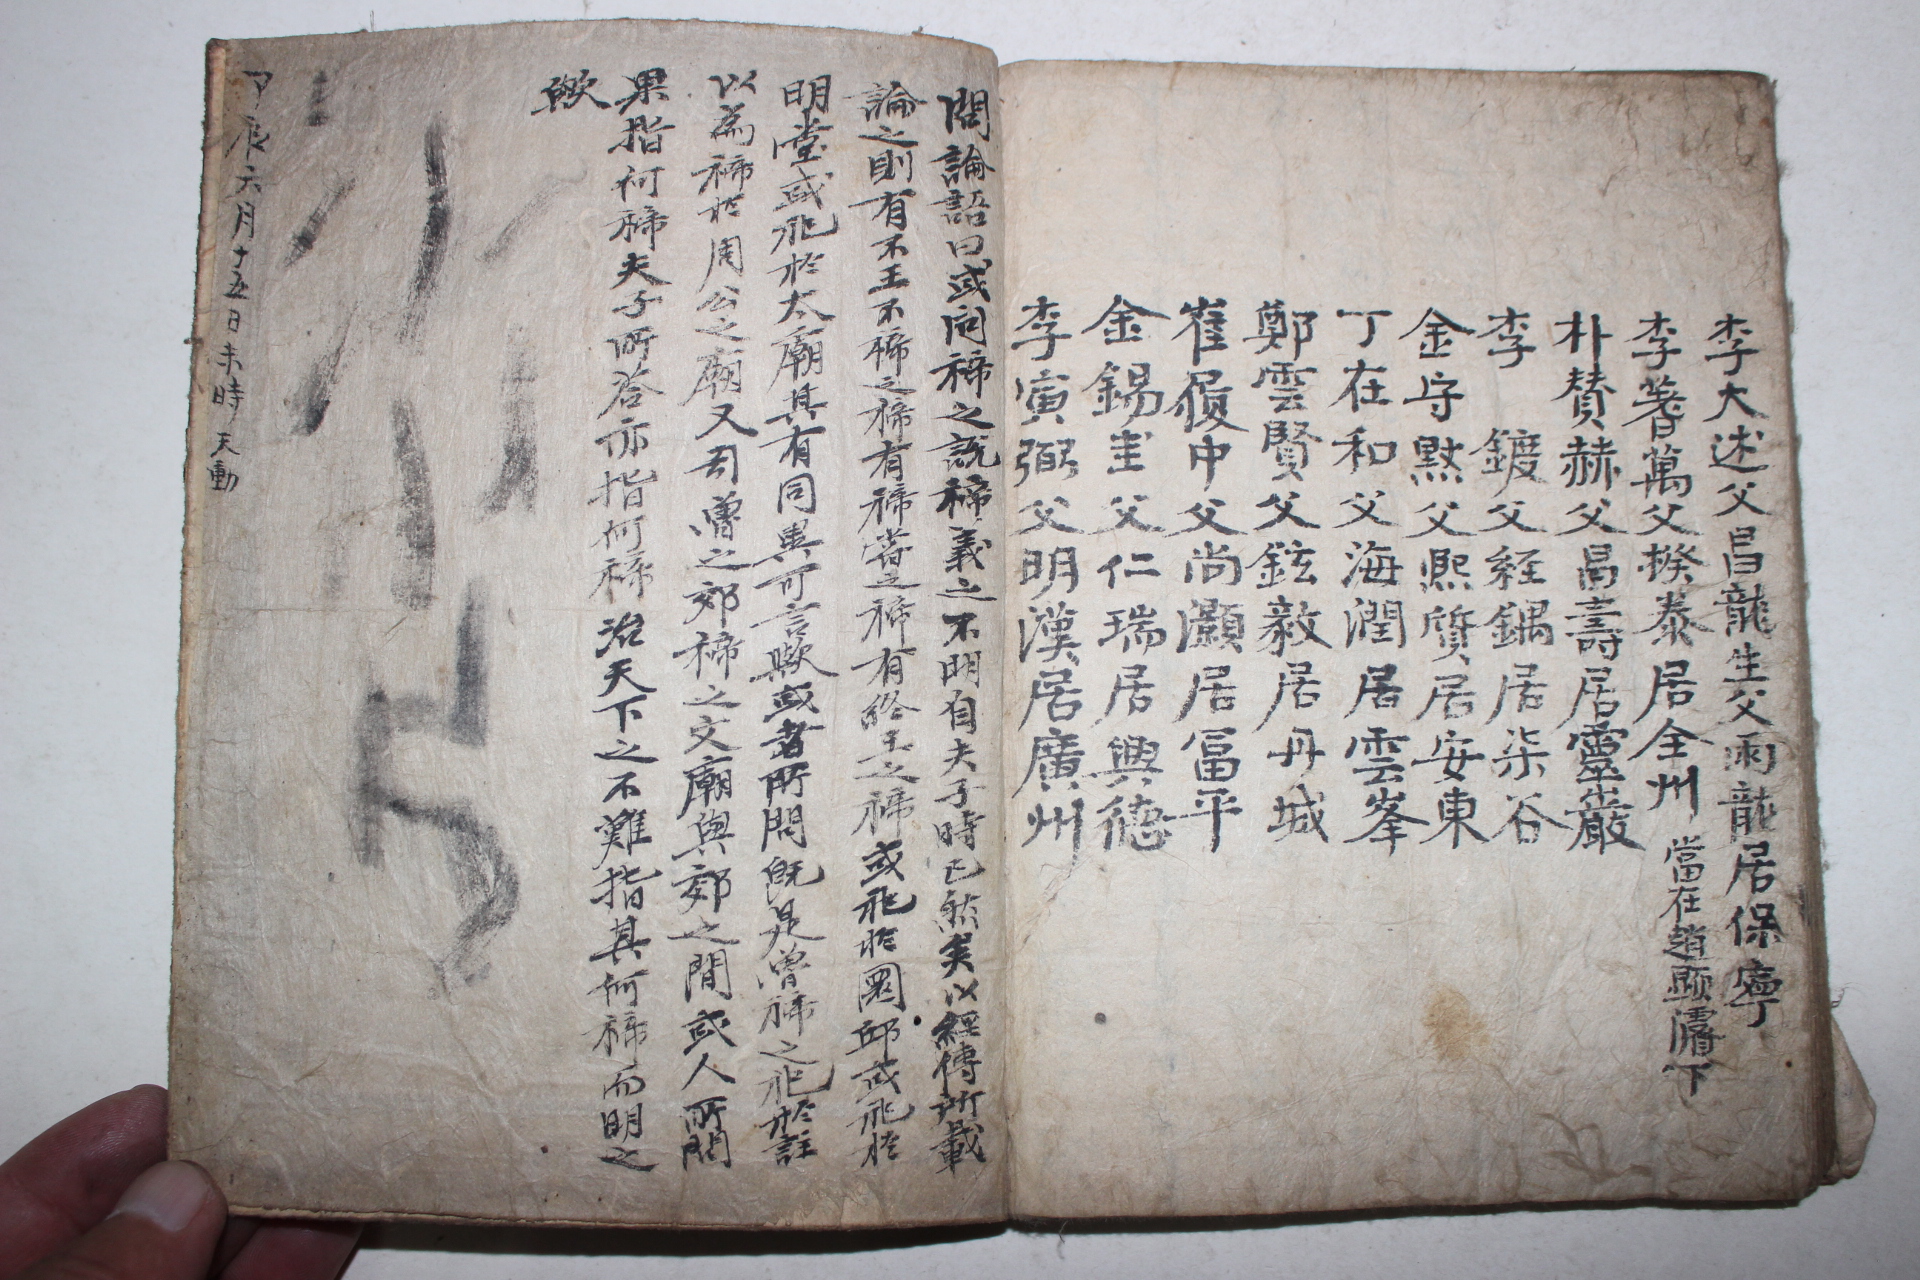 李大述父昌龍生父雨龍居保寧
李著萬父揆泰居全州 當在趙顯濬下
朴贊赫父昌壽居靈巖
李鍍父經鎬居柒谷
金守黙父熙質居安東
丁在和父海潤居雲峯
鄭雲賢父鉉毅居丹城
崔履中父尚灝居富平
金錫圭父仁瑞居興德
李寅弼父明漢居廣州
問論語曰或问禘之說禘義之不明自夫子時已然矣以經傳所載
論之則有不王不禘之禘有禘嘗之禘有終王之禘或祀於圜邱或祀於
明堂或祀於太廟其有同異可言歟或者所問旣是魯禘之祀於註
以爲禘於周公之廟又有魯之郊禘之文廟與郊之間或人所問
果指何禘夫子所答亦指何禘治天下之不難指其何禘而明之
歟
甲辰六月十五日未時天動